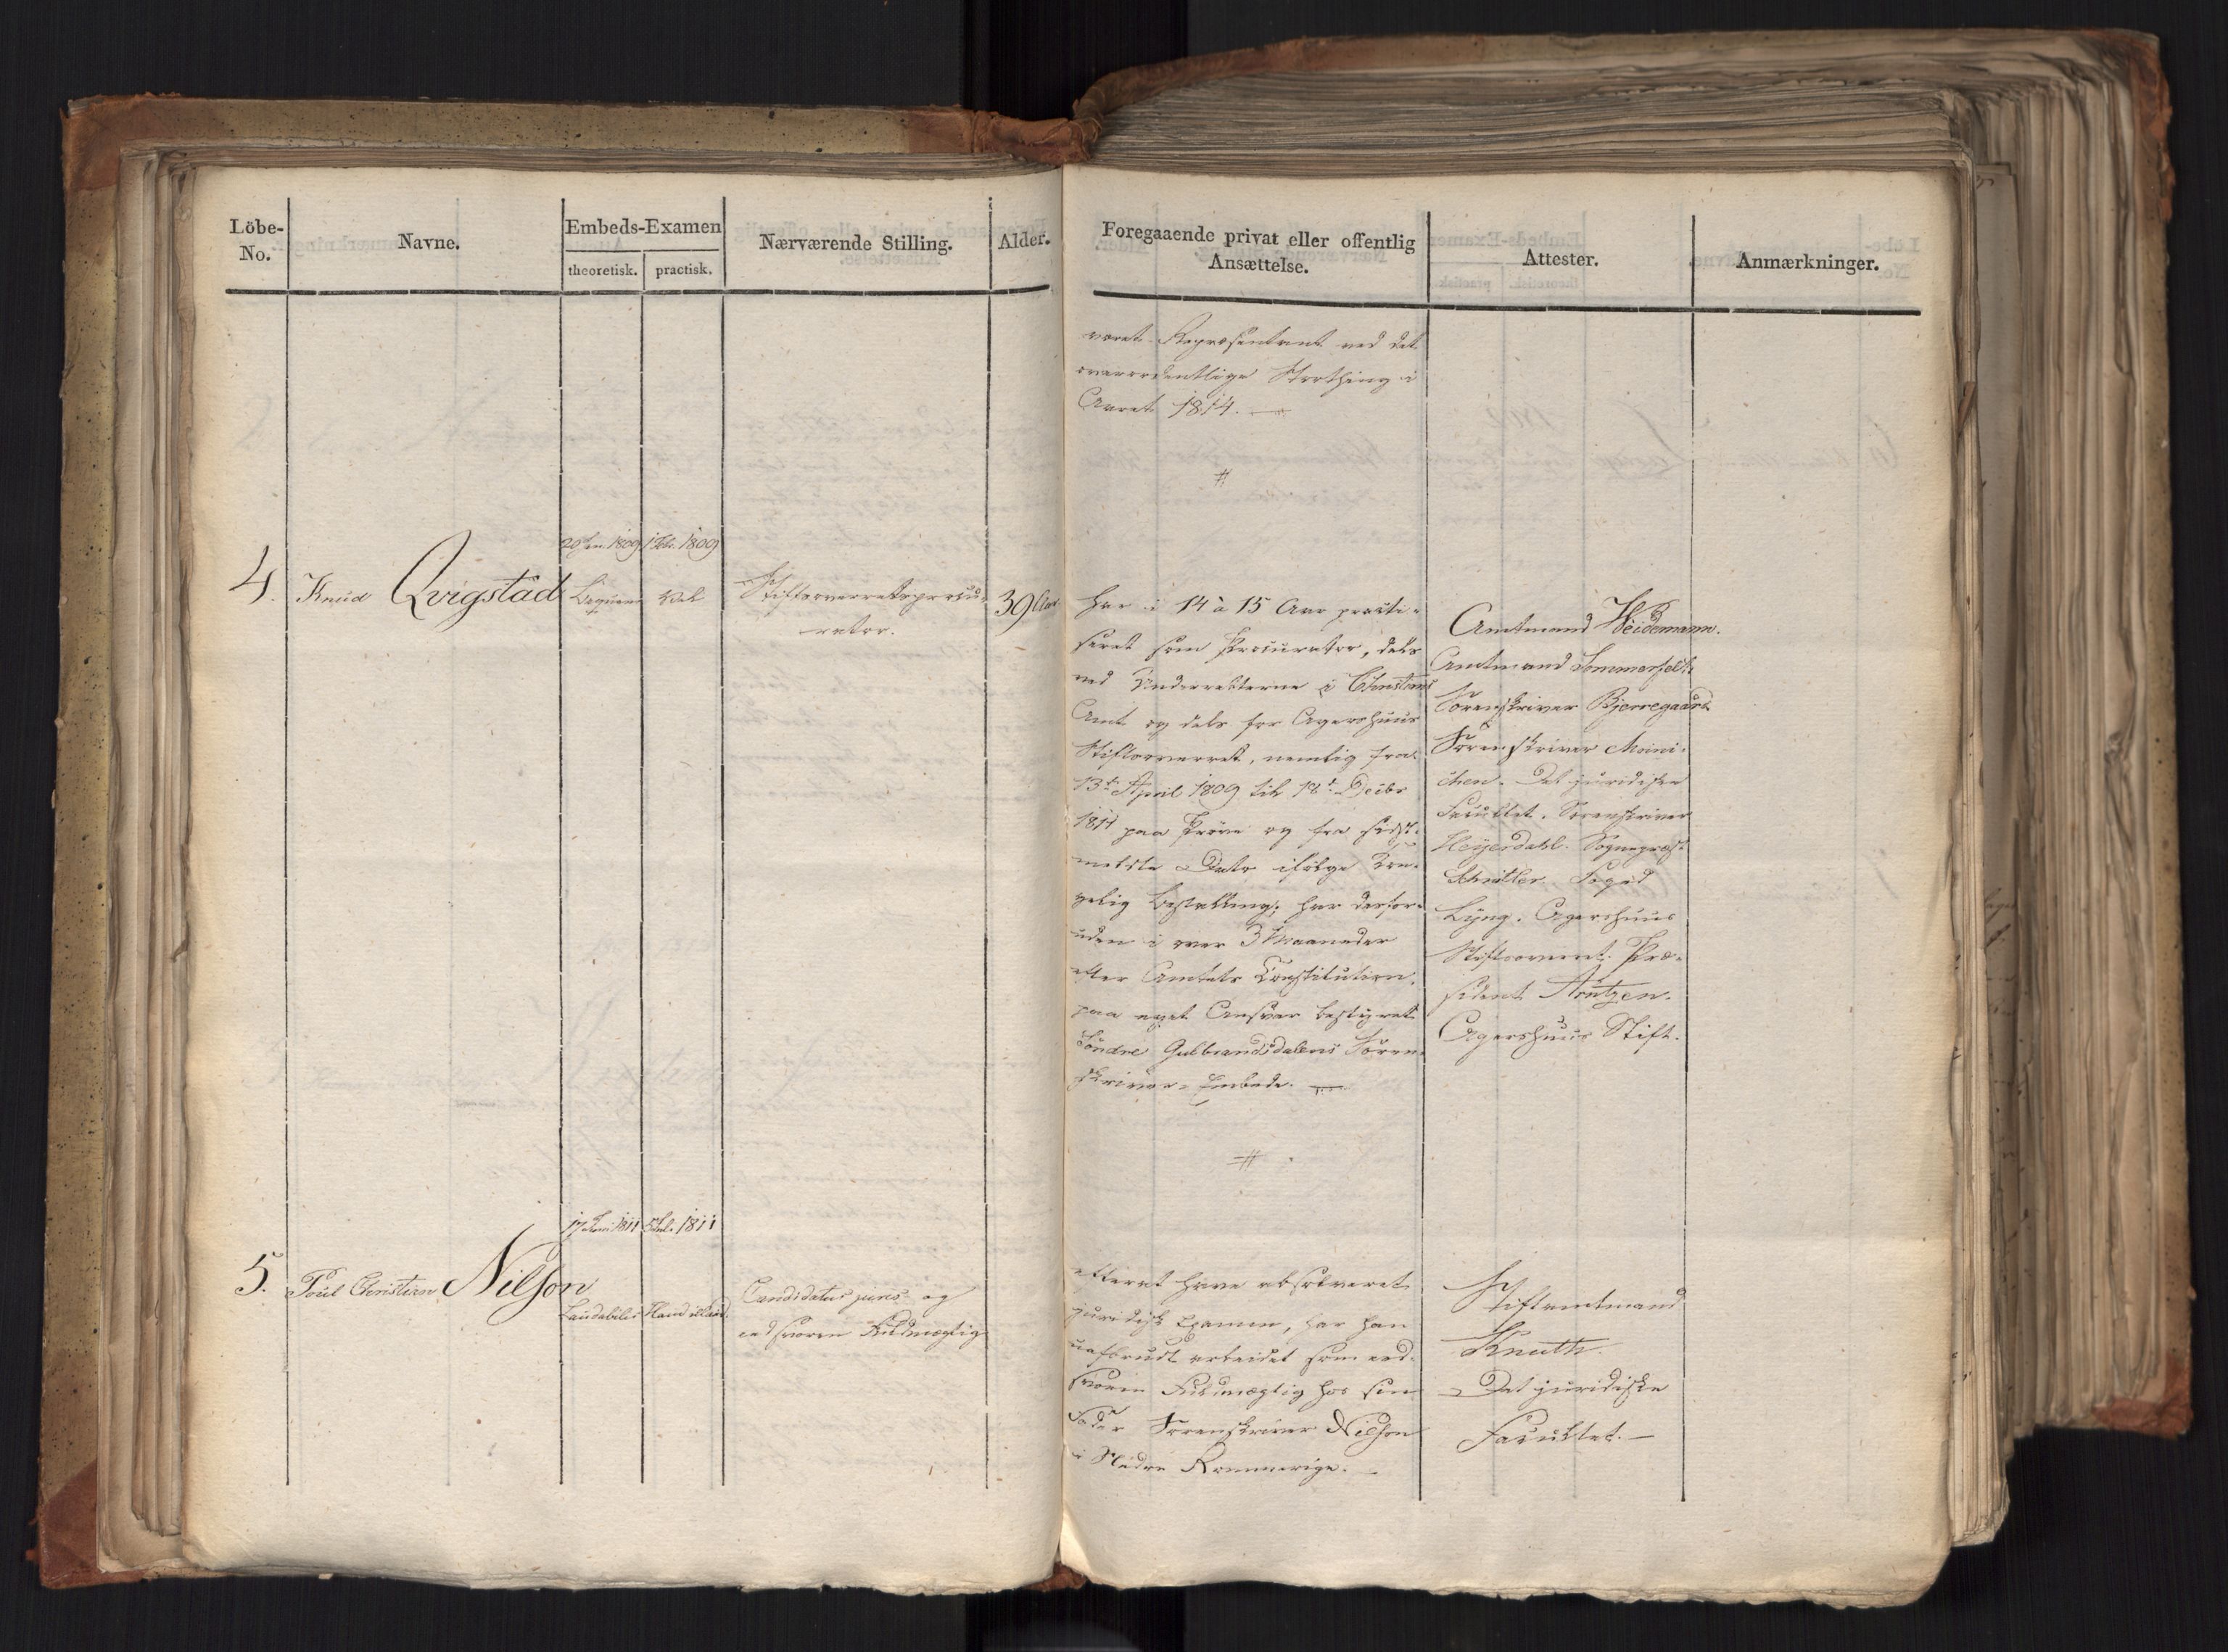 Löbe-
No.
Navne.
Embeds-Examen
theoretisk.
practisk.
Nærværende Stilling.
Alder.
Foregaaende privat eller offentlig
Ansættelse.
Attester.
Anmærkninger.
været Repræsentant ved det
overordentlige Storthing i
Aaret 1814. —
#
4.
Knud Qvigstad
20 Jan. 1809
Beqvem
1 Feb. 1809
Vel
Stiftsoverretsprocu-
rator.
39 Aar
har i 14 à 15 Aar practi-
seret som Procurator, dels
ved Underretterne i Christians
Amt og dels for Agershuus
Stiftsoverret, nemlig fra
13de April 1809 til 18de Decbr
1811 paa Prøve og fra sidst-
meldte Dato ifølge Kon-
gelig Bestalling; har desfor-
uden i over 3 Maaneder
efter Amtets Constitution,
paa eget Ansvar bestyret
Søndre Gulbrandsdalens Soren-
skriver-Embede. —
Amtmand Weidemann.
Amtmand Sommerfelt.
Sorenskriver Bjerregaard
Sorenskriver Moini-
chen. Det juridiske
Facultet. Sorenskriver
Heyerdahl. Sognepræst
Foged
Lyng. Agershuus
Stiftsoverret. Præ-
sident Arntzen.
Agershuus Stift.
#
5.
Poul Christian Nilson
17 Juni 1811
Laudabilis
Jul. 1811
Haud illaud.
Candidatus juris og
edsvoren Fuldmægtig
efterat have absolveret
juridisk Examen, har han
uafbrudt arbeidet som ed-
svoren Fuldmægtig hos sin
Fader Sorenskriver Nilson
i Nedre Rommerige. —
Stiftamtmand
Knuth.
Det juridiske
Facultet. —